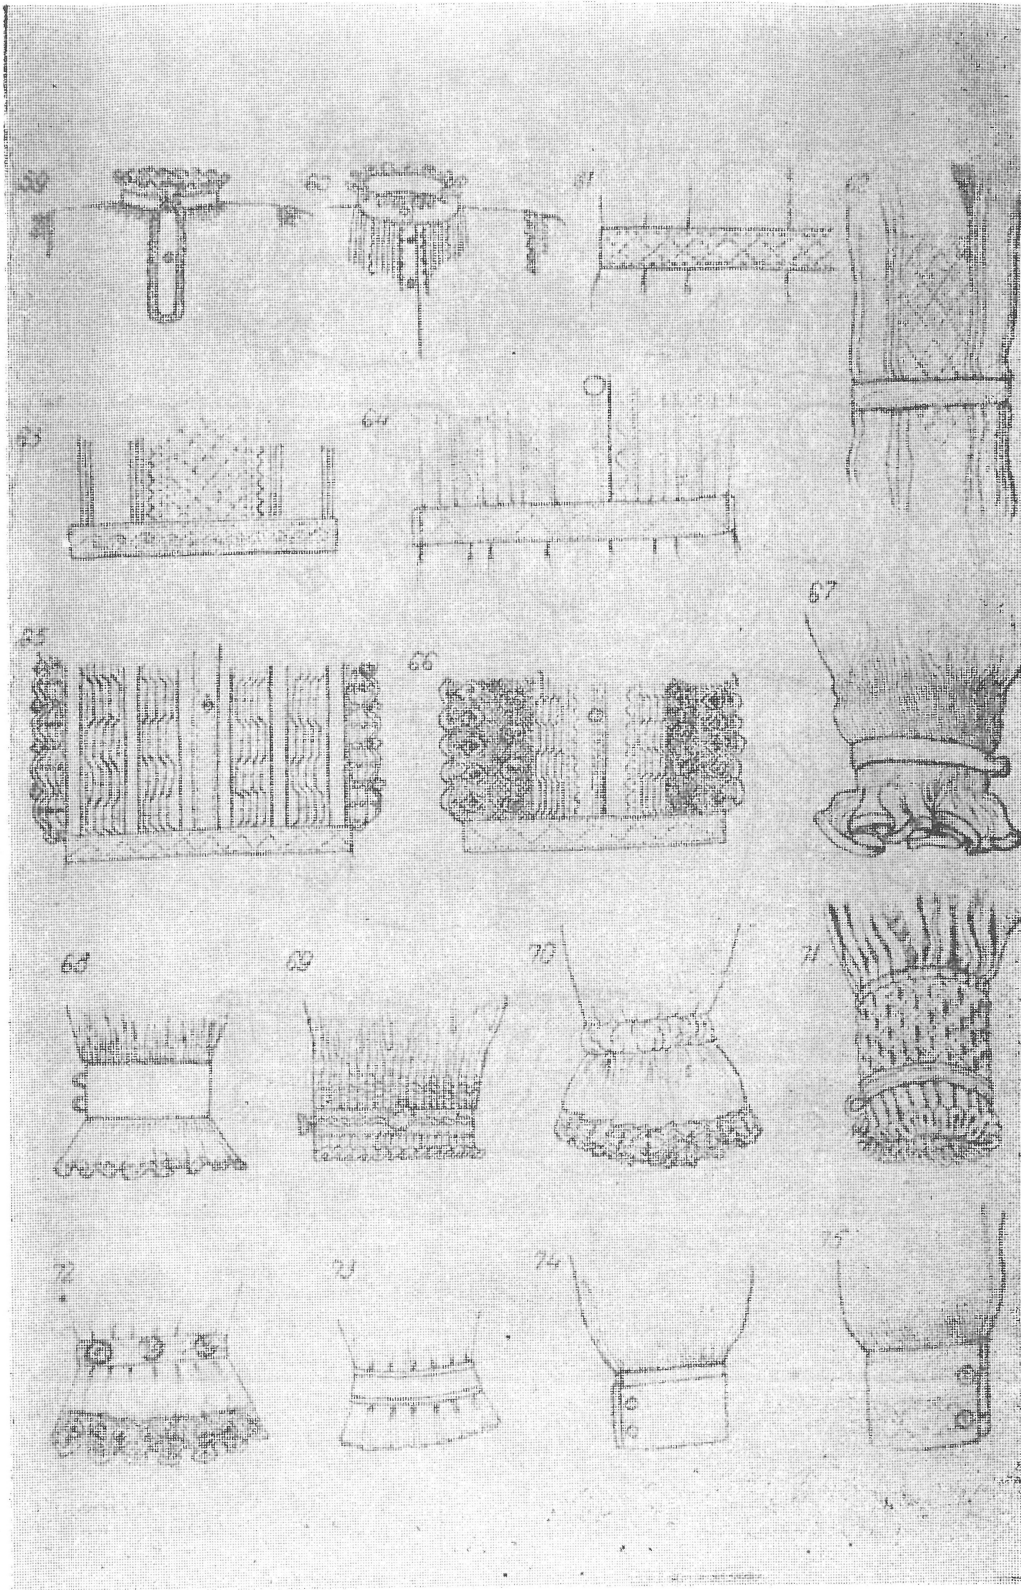 59 60 61 62
63 64
65 66 67
68 69 70 71
72 73 74 75